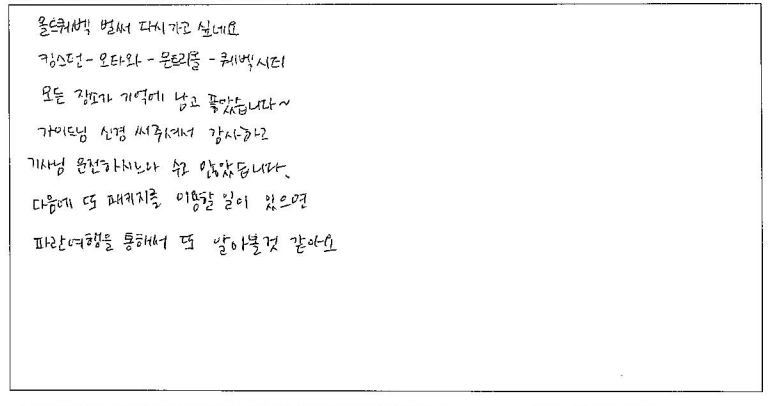 올드퀘벡 벌써 다시가고 싶네요
킹스턴 - 오타와 - 몬트리올 - 퀘벡시티
모든 장소가 기억에 남고 좋았습니다~
가이드님 신경 써주셔서 감사하고
기사님 운전하시느라 수고 많았습니다.
다음에 또 패키지를 이용할 일이 있으면
파란여행을 통해서 또 알아볼것 같아요